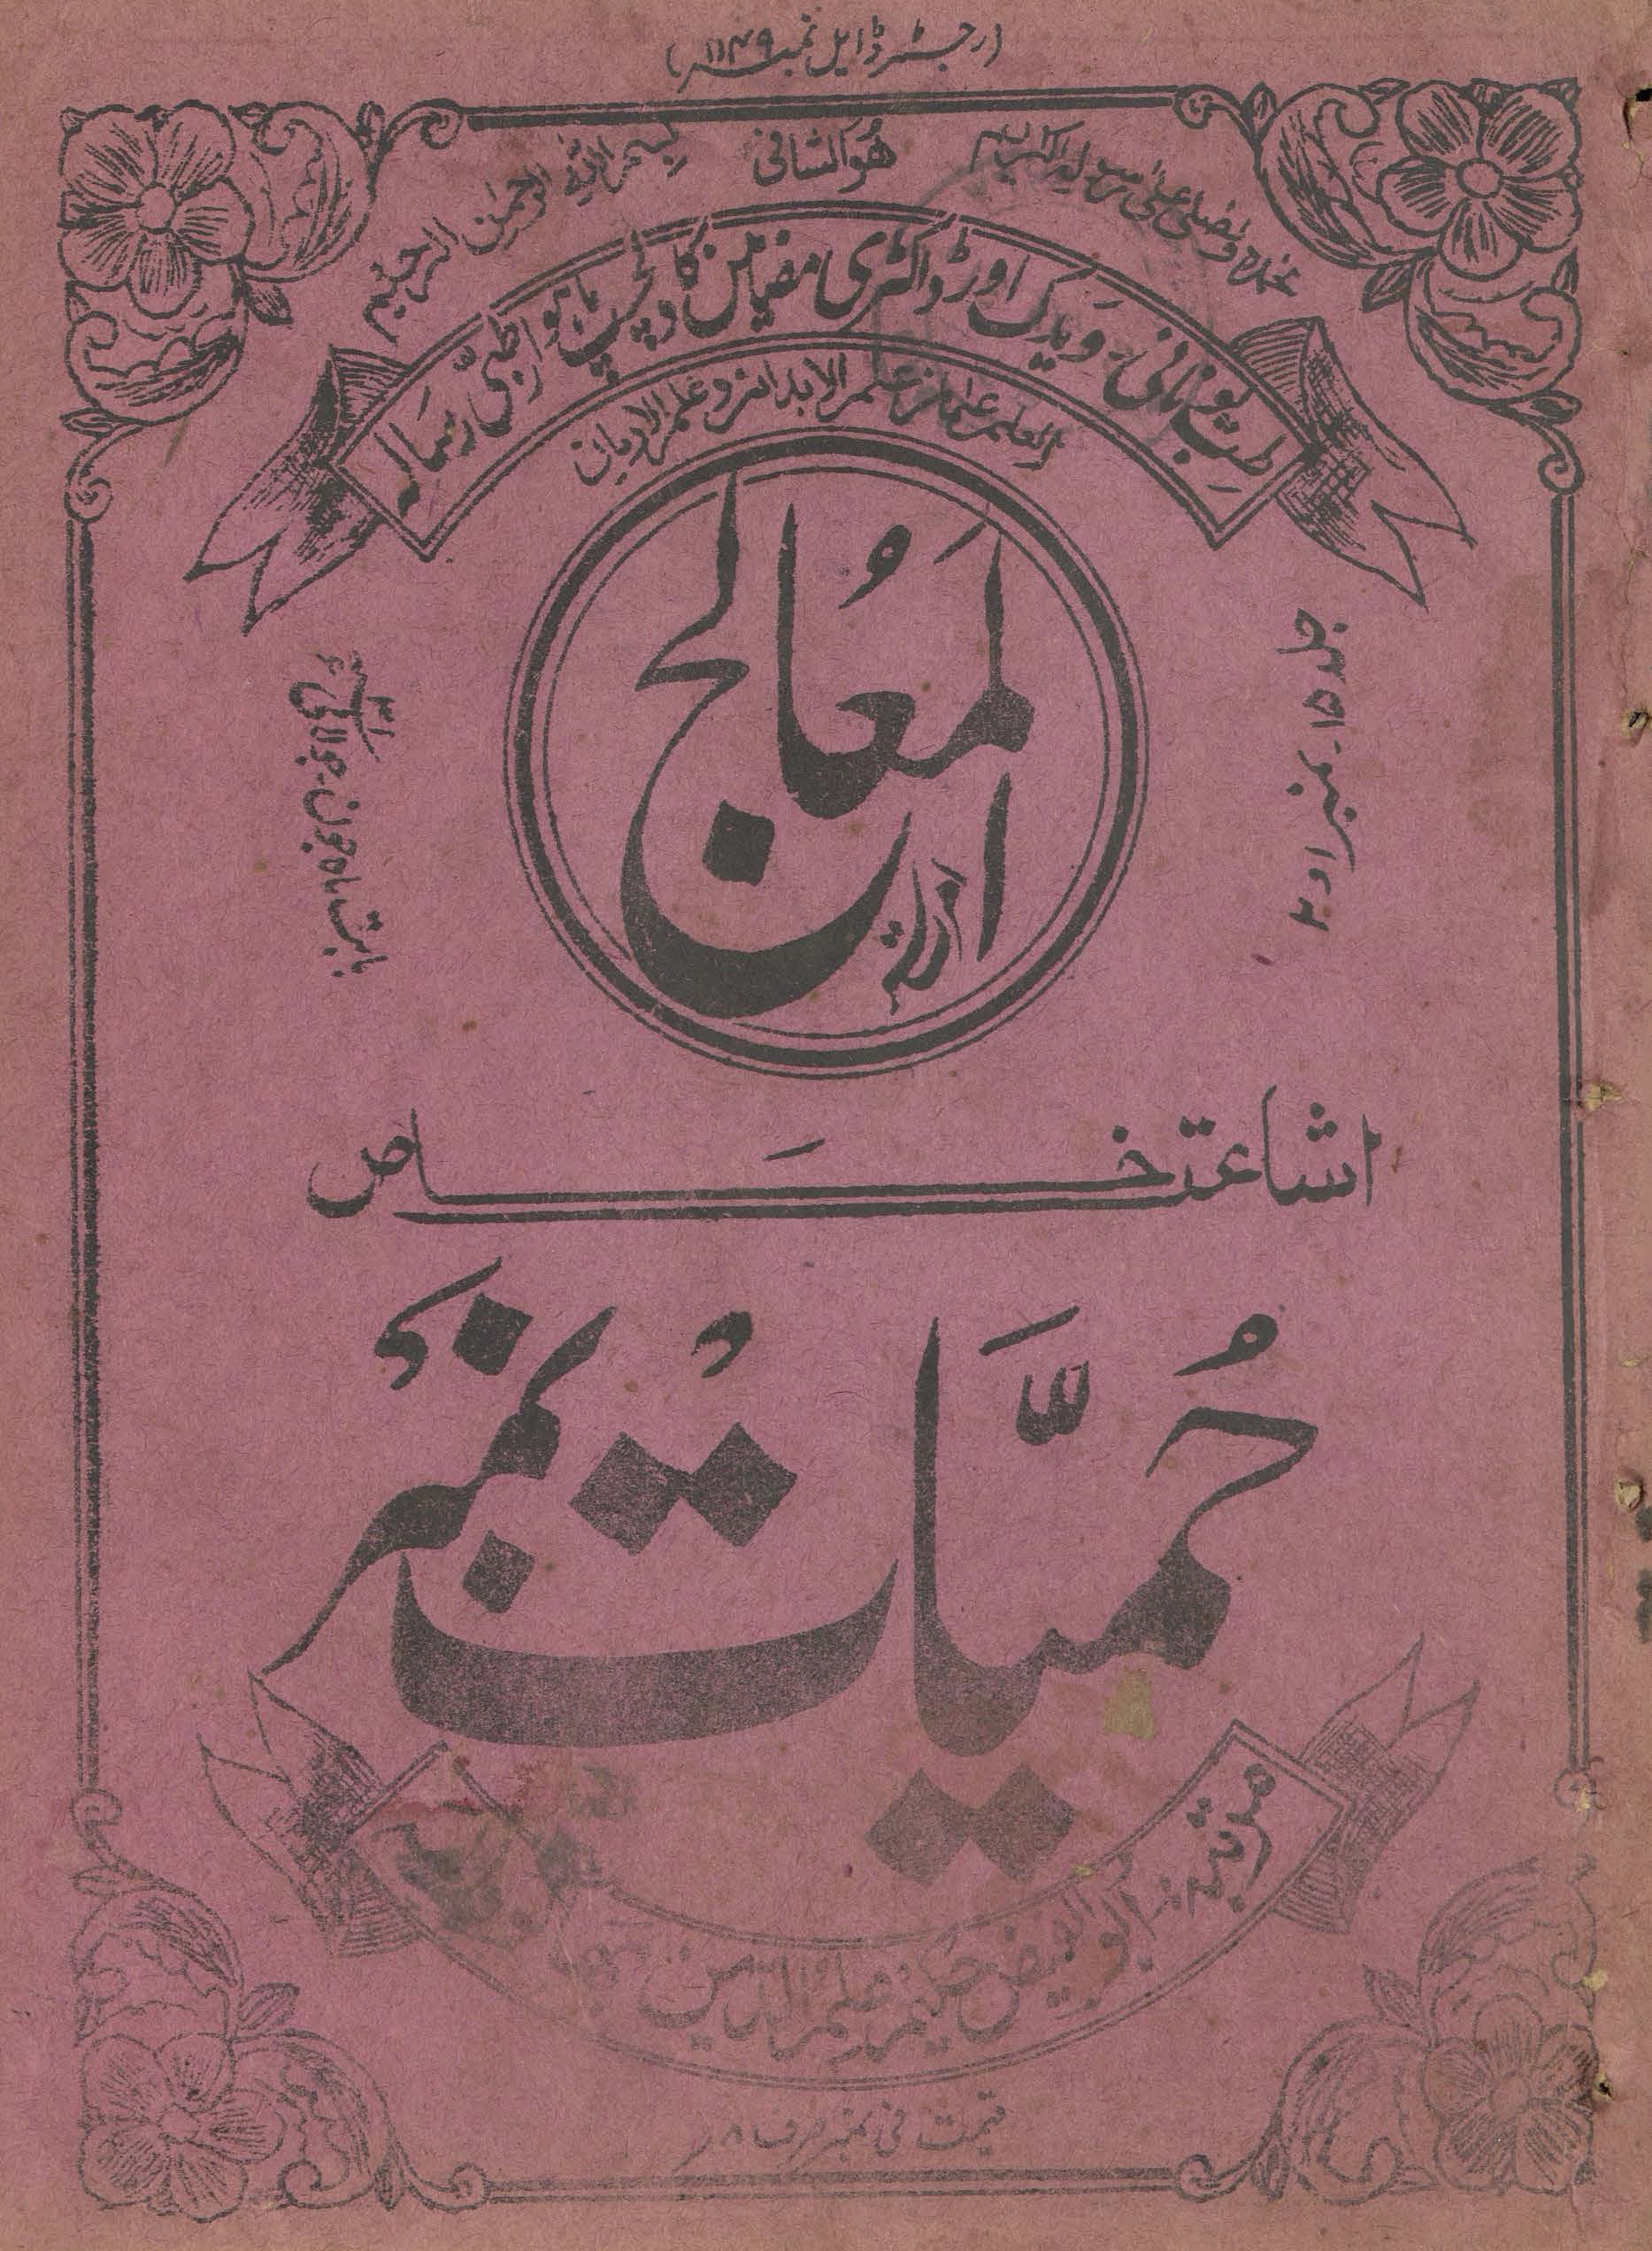 (رجسٹرڈ ایل نمبر ۱۱۳۹)
بسم اللہ الرحمٰن الرحیم
ھُوَ الشافی
نحمدہ و نصلی علیٰ رسولہ الکریم
طب یونانی۔ ویدک اور ڈاکٹری مضامین کا دلچسپ ماہوار طبی رسالہ
العلم علمان علم الابدان و علم الادیان
اَلمُعالج
امرتسر
جلد ۱۵۔ نمبر ۱ و ۲
بابت ماہ جون۔ جولائی
اشاعت خَاص
حُمّیّات نمبر
مرتبہ:۔ ابوالفیض حکیم علم الدین
قیمت فی نمبر صرف ۸؍